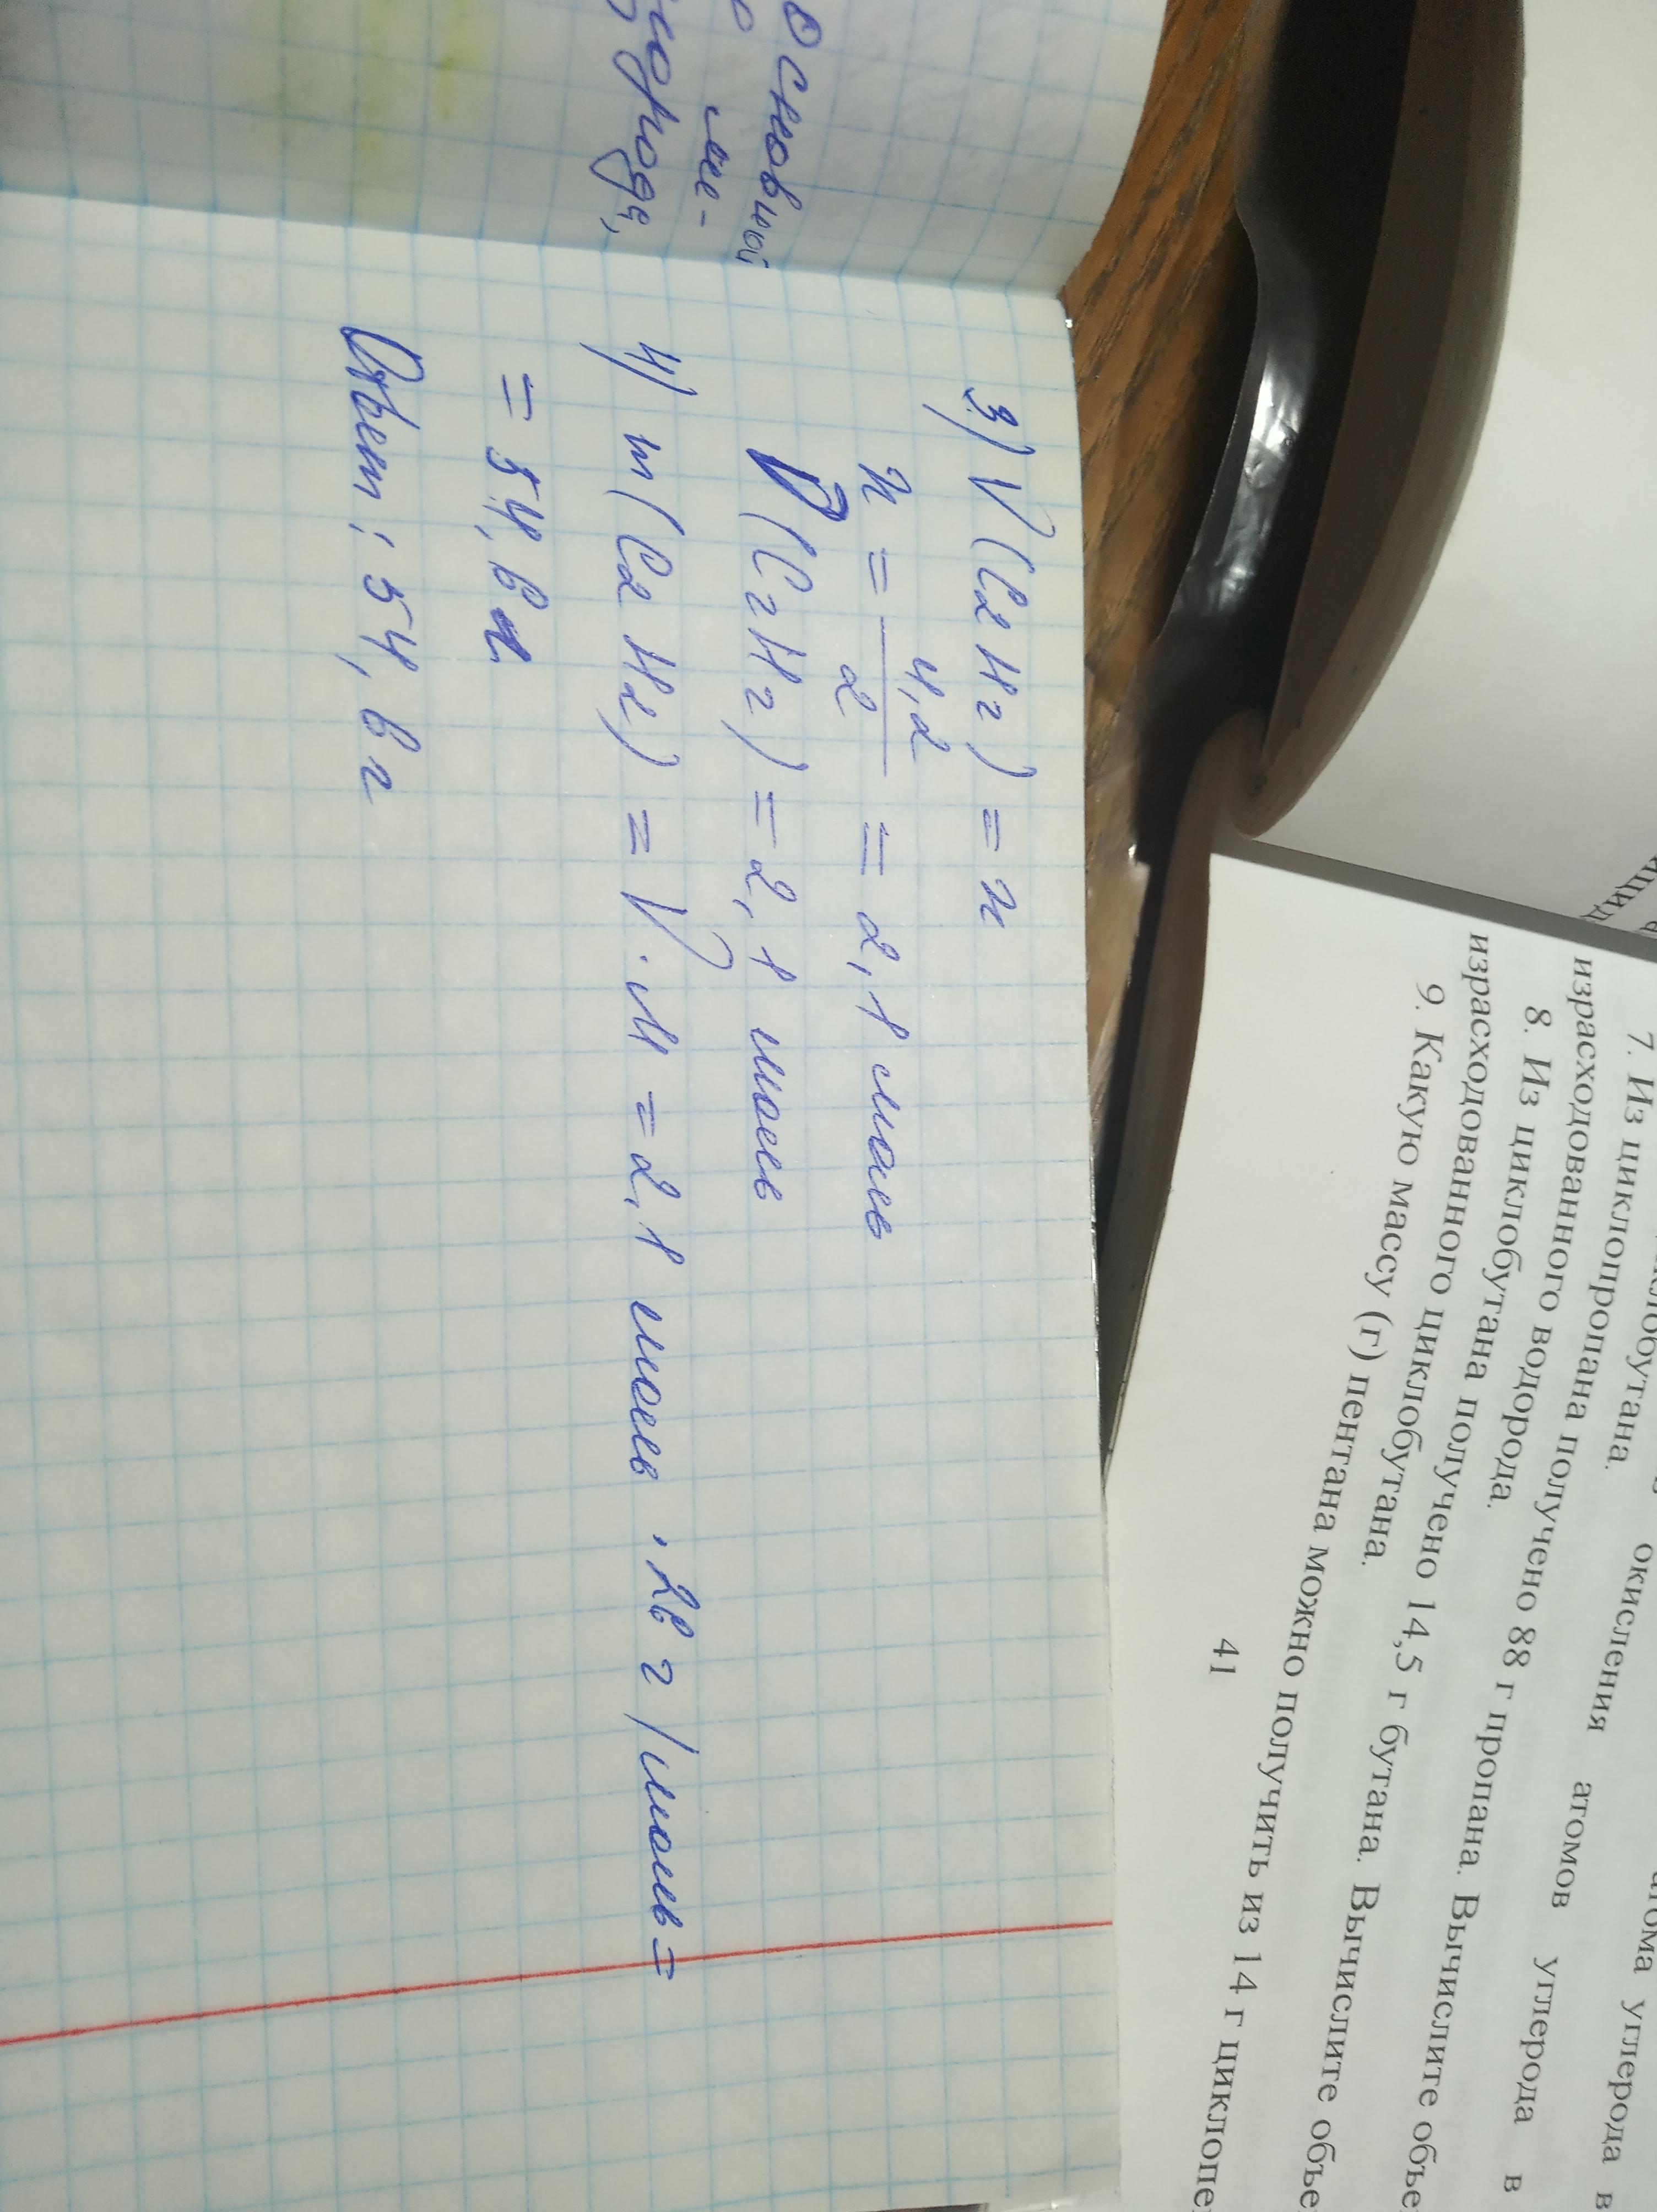 основной
ме-
3) V(C2H2) = x
x = 4,2 / 2 = 2,1 моль
V(C2H2) = 2,1 моль
4) m(C2H2) = V · M = 2,1 моль · 26 г/моль =
= 54,6 г
Ответ: 54,6 г
окисления атомов углерода в
7. Из циклопропана получено 88 г пропана. Вычислите объе
израсходованного водорода.
8. Из циклобутана получено 14,5 г бутана. Вычислите объе
израсходованного циклобутана.
9. Какую массу (г) пентана можно получить из 14 г циклопе
41